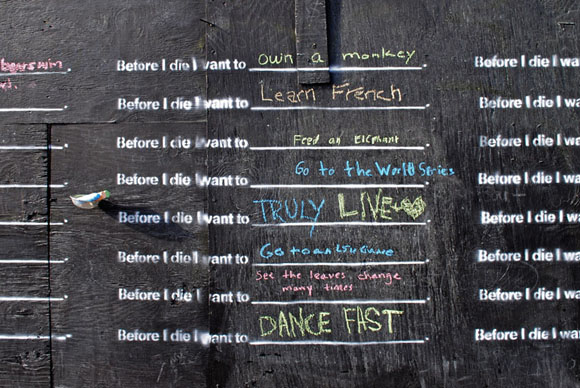 bears win.
Before I die I want to own a monkey.
Before I die I want to Learn French.
Before I die I want to Feed an ElEphant.
Before I die I want to Go to the World Series
Before I die I want to TRULY LIVE.
Before I die I want to Go to an
Before I die I want to See the leaves change
many times.
Before I die I want to DANCE FAST.
Before I die I wa
Before I die I wa
Before I die I wa
Before I die I wa
Before I die I wa
Before I die I wa
Before I die I wa
Before I die I wa